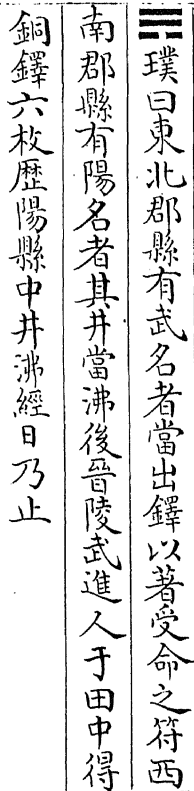 璞曰東北郡縣有武名者當出鐸以著受命之符西
南郡縣有陽名者其井當沸後晉陵武進人于田中得
銅鐸六枚歷陽縣中井沸經日乃止